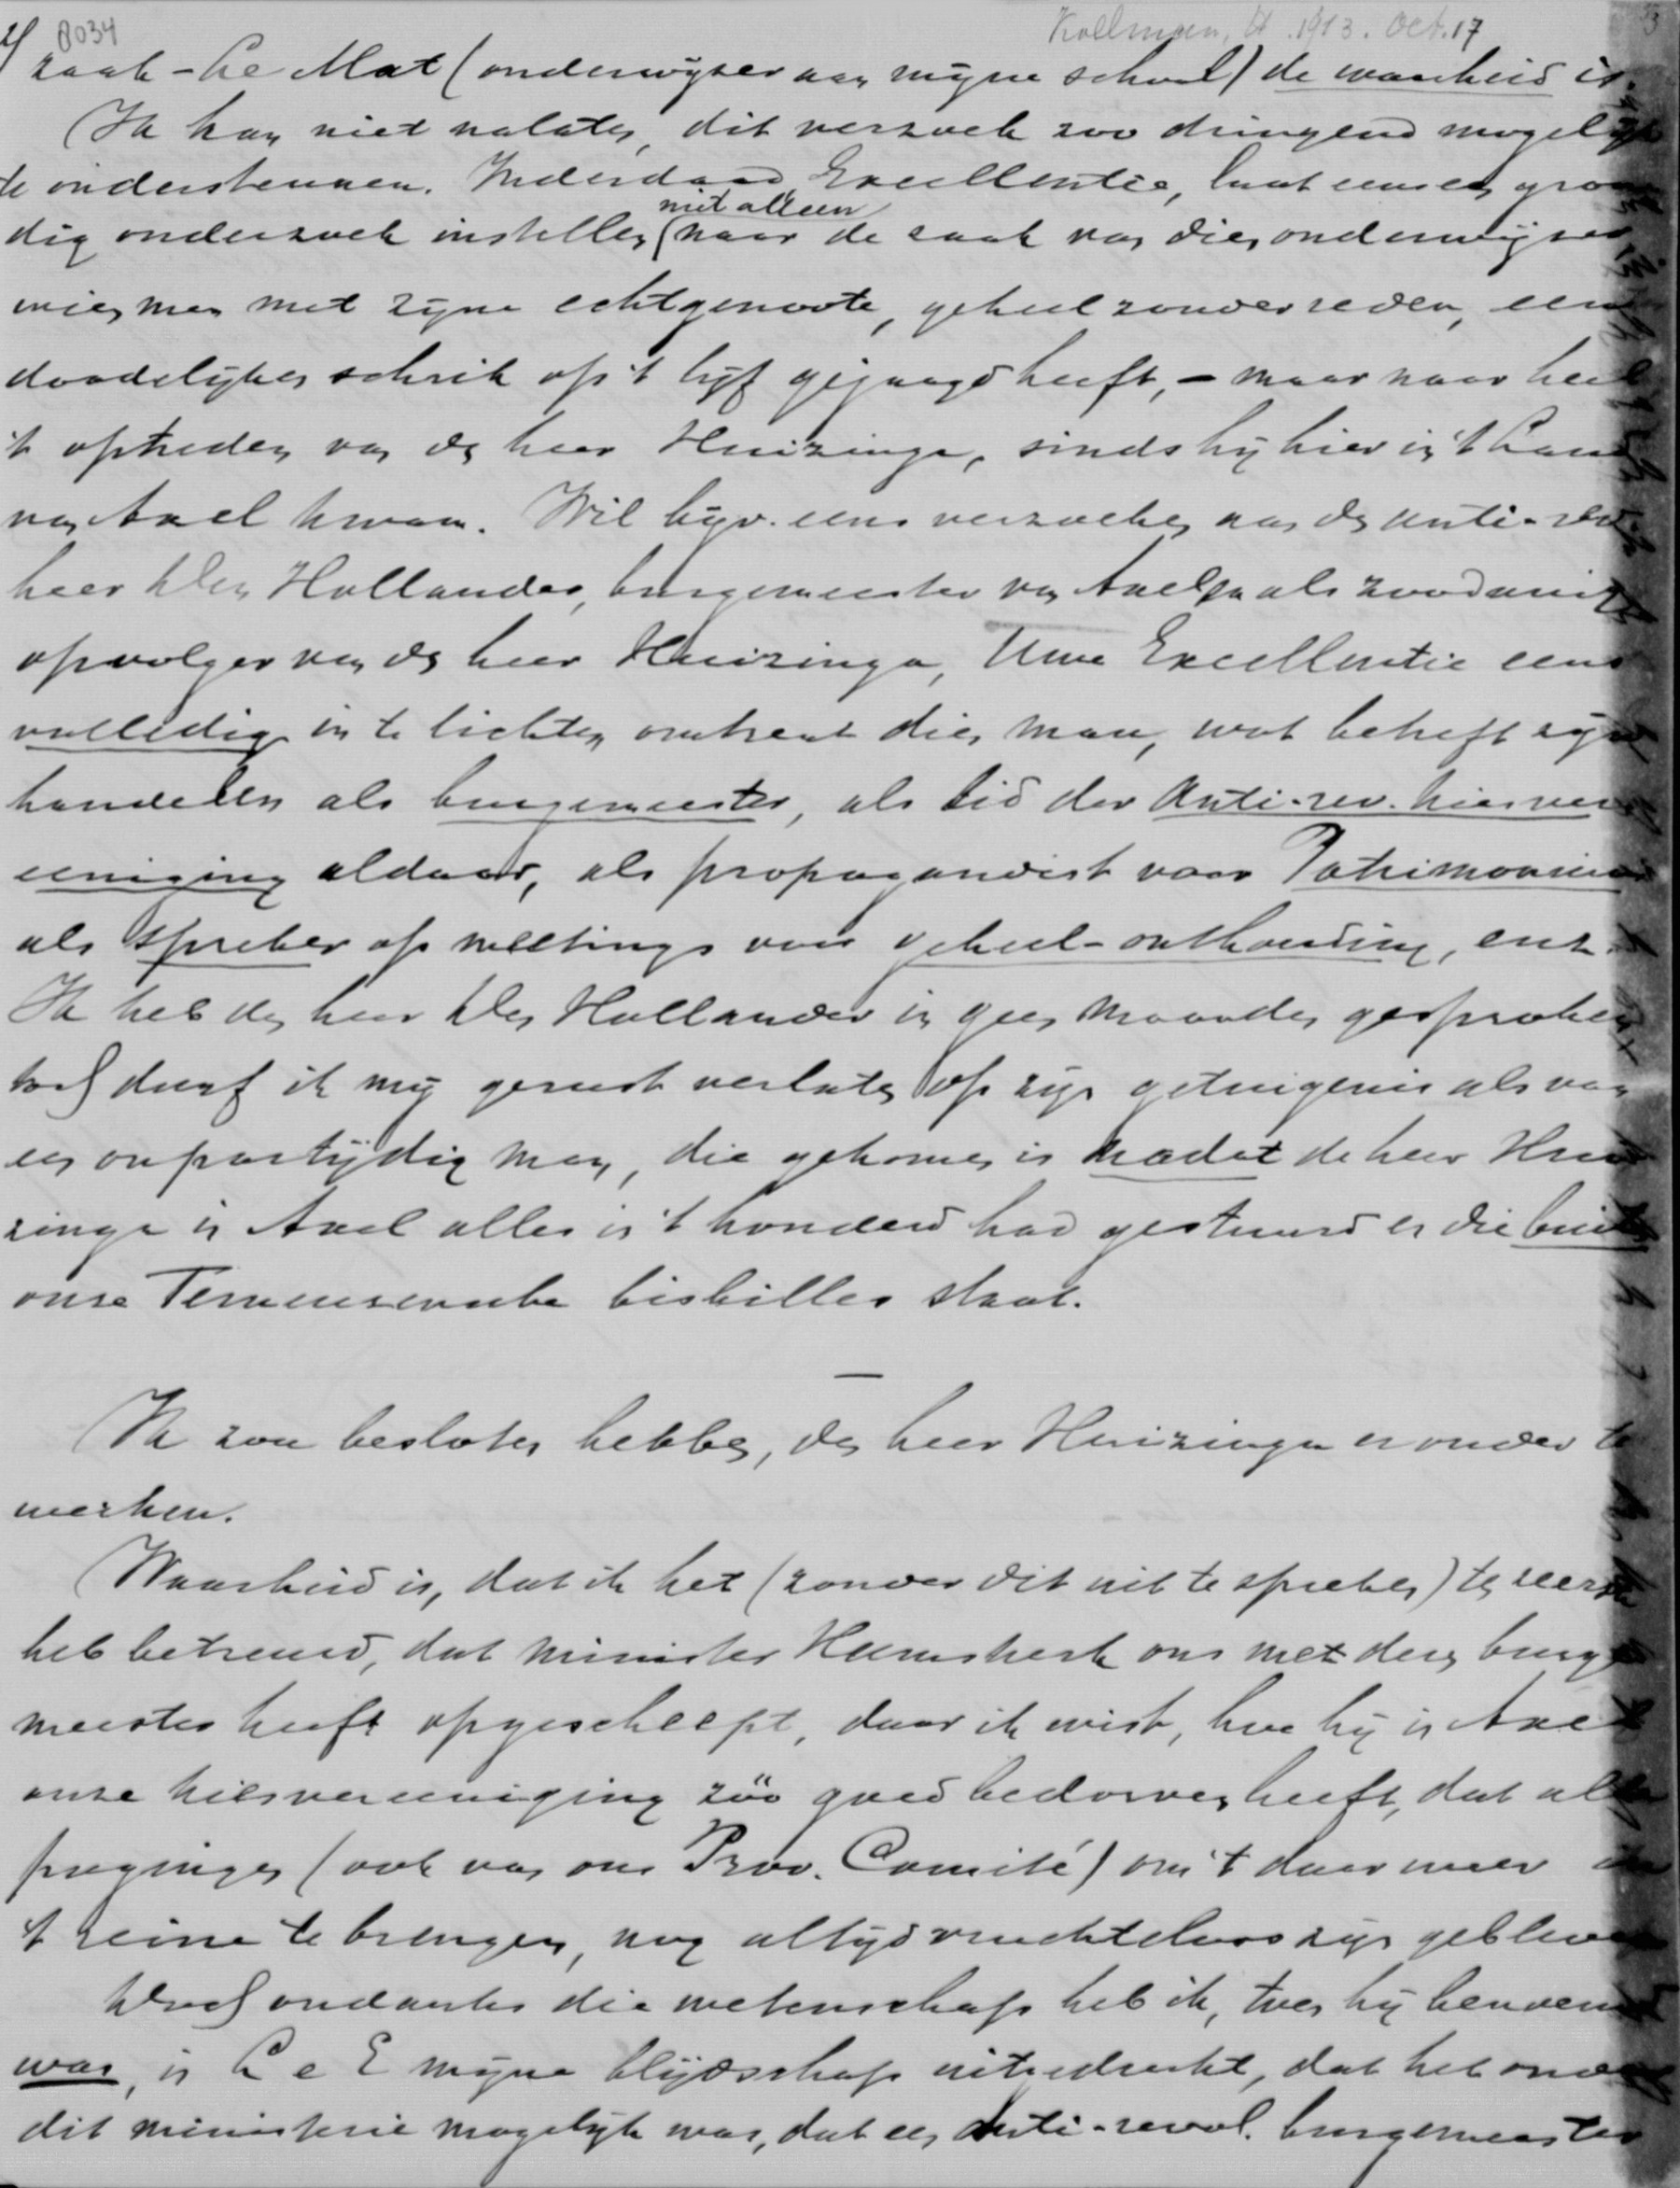 2/ 8034 Kollmaen, H. 1913. Oct. 17
zaak-Le Mat (onderwijzer aan mijne school) de waarheid is.
Ik kan niet nalaten, dit verzoek zoo dringend mogelijk
te ondersteunen. Inderdaad Excellentie, laat eens een gron-
niet alleen
dig onderzoek instellen (naar de zaak van dien onderwijzer
wien men met zijne echtgenoote, geheel zonder reden, een
doodelijken schrik op 't lijf gejaagd heeft, - maar naar heel
't optreden van den heer Huizinga, sinds hij hier in 't Land
van Axel kwam. Wil bijv. eens verzoeken aan den anti-rev.
heer Den Hollander, burgemeester van Axel, en als zoodanig
opvolger van den heer Huizinga, Uwe Excellentie eens
volledig in te lichten omtrent dien man, wat betreft zijn
handelen als burgemeester, als lid der Anti-rev. kiesver-
eeniging aldaar, als propagandist voor Patrimonium
als spreker op meetings voor geheel-onthouding, enz.
Ik heb den heer Den Hollander in geen maanden gesproken
toch durf ik mij gerust verlaten op zijn getuigenis als van
een onpartijdig man, die gekomen is nadat de heer Hui-
zinga in Axel alles in 't honderd had gestuurd en die buiten
onze Terneuzensche kisbillen staat.
—
Ik zou besloten hebben, den heer Huizinga er onder te
werken.
Waarheid is, dat ik het (zonder dit uit te spreken) ten zeerste
heb betreurd, dat minister Heemskerk ons met dezen burge-
meester heeft opgescheept, daar ik wist, hoe hij in Axel
onze kiesvereeniging zóó goed bedorven heeft, dat alle
pogingen (ook van ons Prov. Comité) om 't daar weer in
't reine te brengen, nog altijd vruchteloos zijn gebleven
Doch ondanks die wetenschap heb ik, toen hij benoemd
was, in L e E mijne blijdschap uitgedrukt, dat het onder
dit ministerie mogelijk was, dat een anti-revol. burgemeester